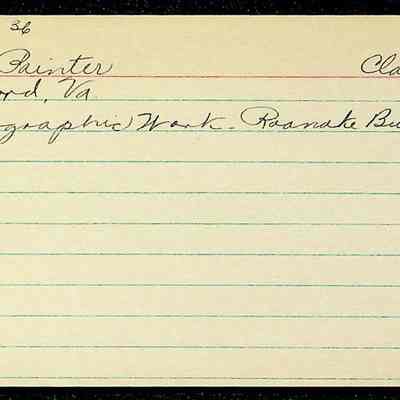 36
Painter Cla
ord, Va
ographic Work - Roanoke Bu